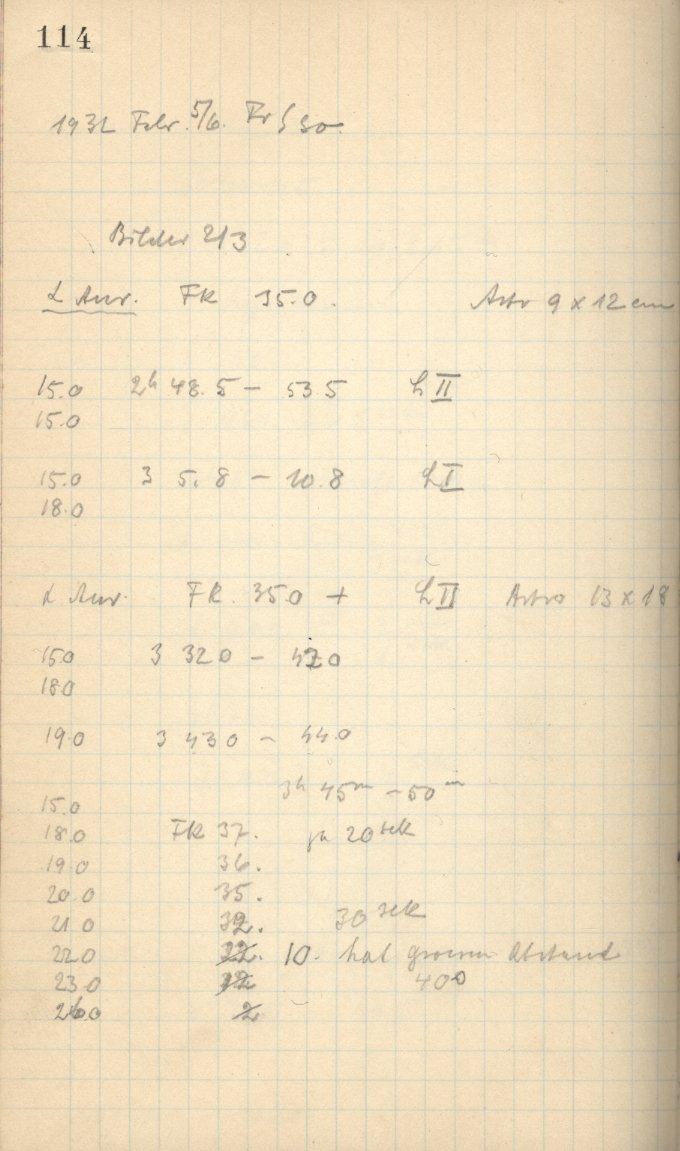 114
1931 Febr. 5/6. Fr
Bilder 2/3
α Aur. FK 35.0. Astro 9 x 12 cm
15.0 2h 48.5 - 53 5 L II
15.0
15.0 3 5.8 - 10.8 L I
18.0
α Aur. FK. 350 + L II Astro 13 x 18
150 3 320 - 420
180
190 3 430 - 440
3h 45m - 50m
15.0
18.0 FK 37. je 20 sek
19.0 36.
20.0 35.
21 0 32. 30 sek
220 10. hat grossen Abstand
23.0 400
260